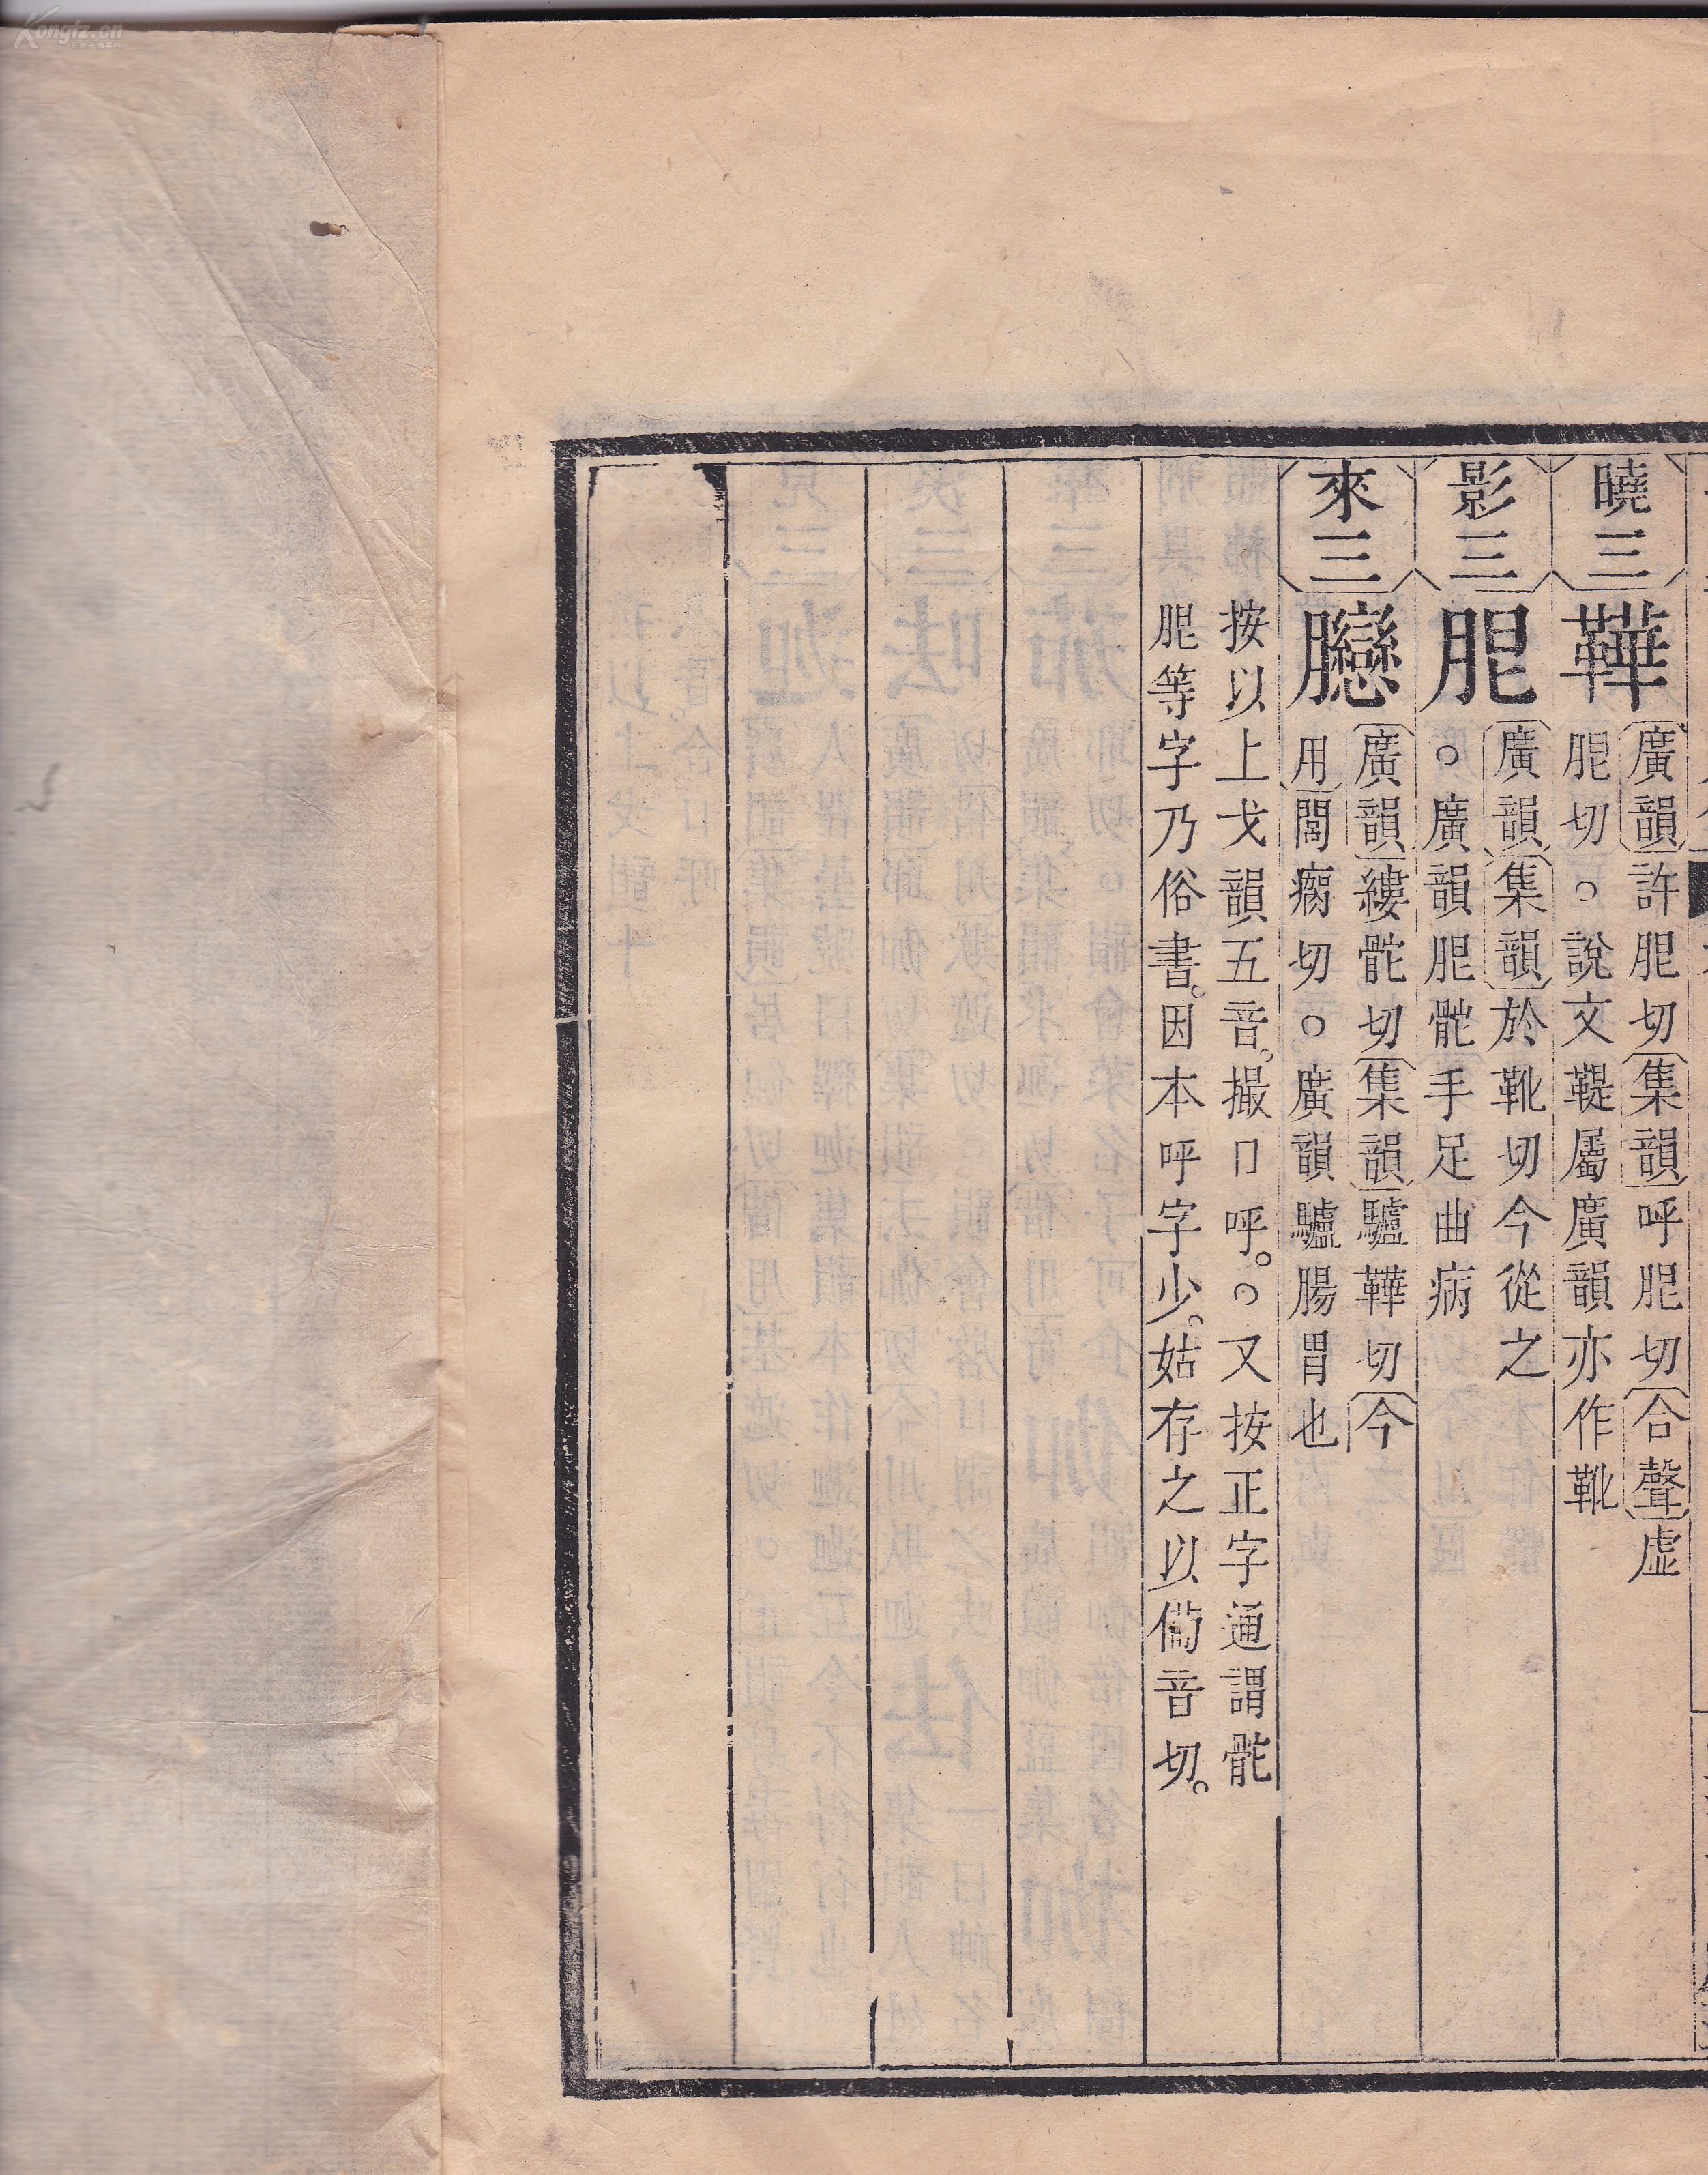 曉三
鞾
廣韻許𦚢切集韻呼𦚢切合聲虛
𦚢切○說文鞮屬廣韻亦作靴
影三
𦚢
廣韻集韻於靴切今從之
○廣韻𦚢𩨷手足曲病
來三
𦣛
廣韻縷𩨷切集韻驢鞾切今
用閭瘸切○廣韻驢腸胃也
按以上戈韻五音。撮口呼。○又按正字通謂𩨷
𦚢等字乃俗書。因本呼字少。姑存之以備音切。
Kongfz.cn